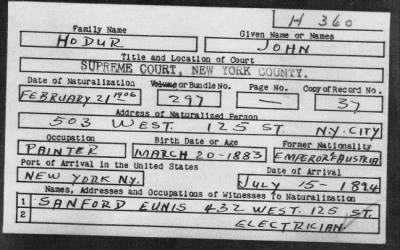 H 360
Family Name Given Name or Names
HODUR JOHN
Title and Location of Court
SUPREME COURT, NEW YORK COUNTY.
Date of Naturalization Volume or Bundle No. Page No. Copy of Record No.
FEBRUARY 21 1906 297 — 37
Address of Naturalized Person
503 WEST. 125 ST. N.Y. CITY
Occupation Birth Date or Age Former Nationality
PAINTER MARCH 20-1883 EMPEROR AUSTRIA
Port of Arrival in the United States Date of Arrival
NEW YORK NY. JULY 15-1894
Names, Addresses and Occupations of Witnesses to Naturalization
1 SANFORD EUNIS 432 WEST. 125 ST.
2 ELECTRICIAN